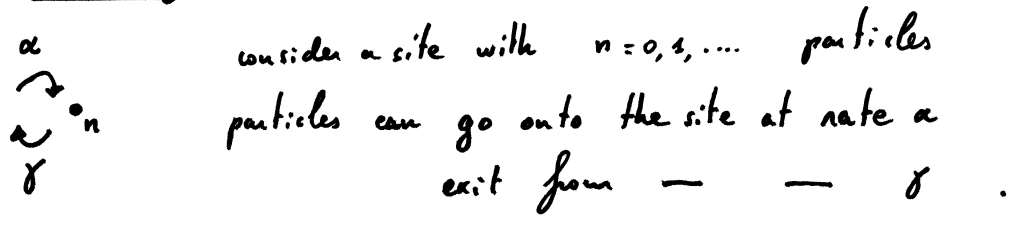 α consider a site with n = 0, 1, .... particles
n particles can go onto the site at rate α
γ exit from — — γ .